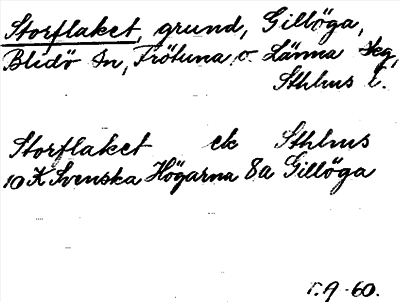 Storflaket, grund, Gillöga,
Blidö sn, Frötuna o. Länna skg,
Sthlms l.
Storflaket ek Sthlms
10 K Svenska Högarna 8a Gillöga
r.9.60.